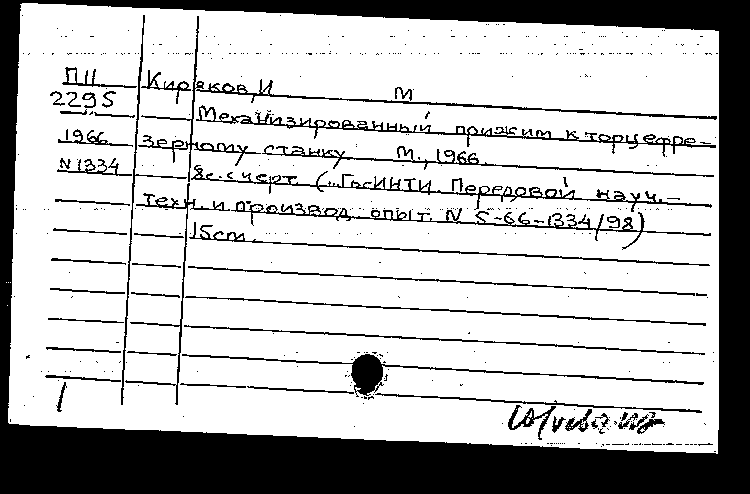 П11 Киряков, И М
2295 Механизированный прижим к торцефре-
1966 зерному станку. М., 1966.
N1334 8с. с черт. (ГосИНТИ. Передовой науч.-
техн. и производ. опыт. N 5-66-1334/98)
15см.
1